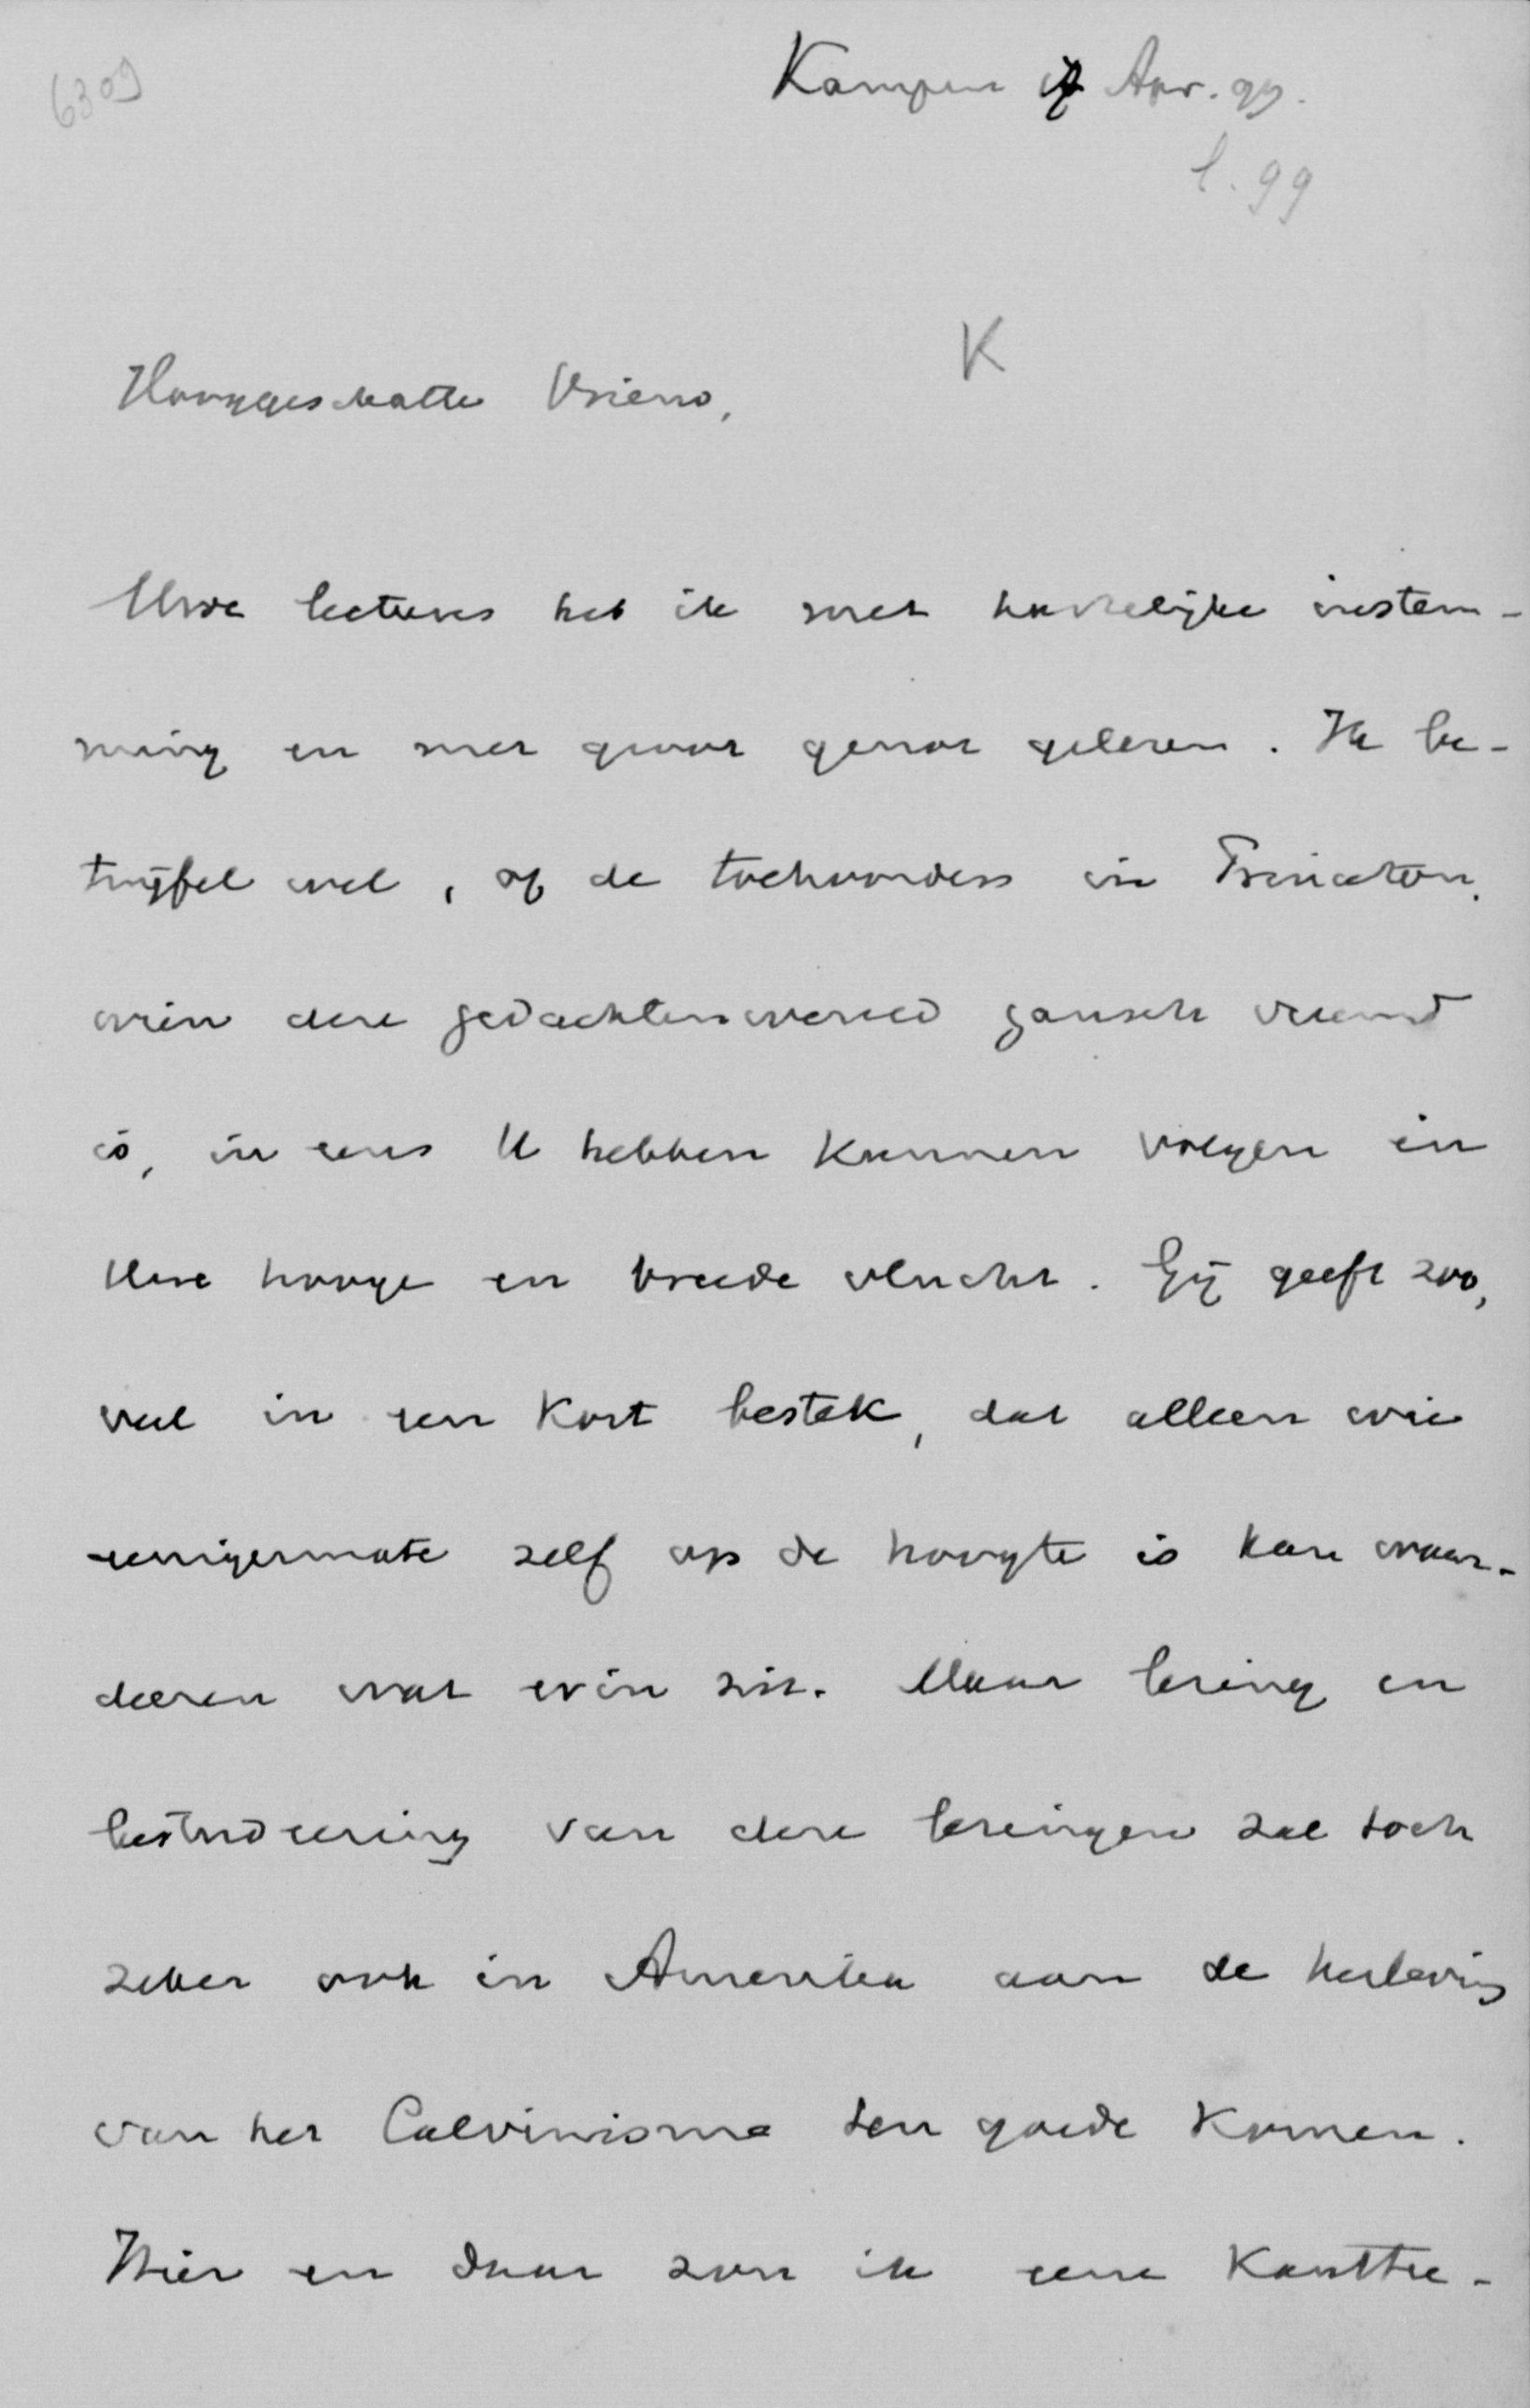 6309
Kampen Apr. 99.
l. 99
K
Hooggeschatte Vriend,
Uwe lectures heb ik met hartelijke instem-
ming en met groot genot gelezen. Ik be-
twijfel wel, of de toehoorders in Princeton,
wien deze gedachtenwereld gansch vreemd
is, in eens U hebben kunnen volgen in
Uwe hooge en breede vlucht. Gij geeft zoo,
veel in een kort bestek, dat alleen wie
eenigermate zelf op de hoogte is kan waar-
deeren wat erin zit. Maar lezing en
bestudeering van deze lezingen zal toch
zeker ook in Amerika aan de herleving
van het Calvinisme ten goede komen.
Hier en daar zou ik eene kanttee-